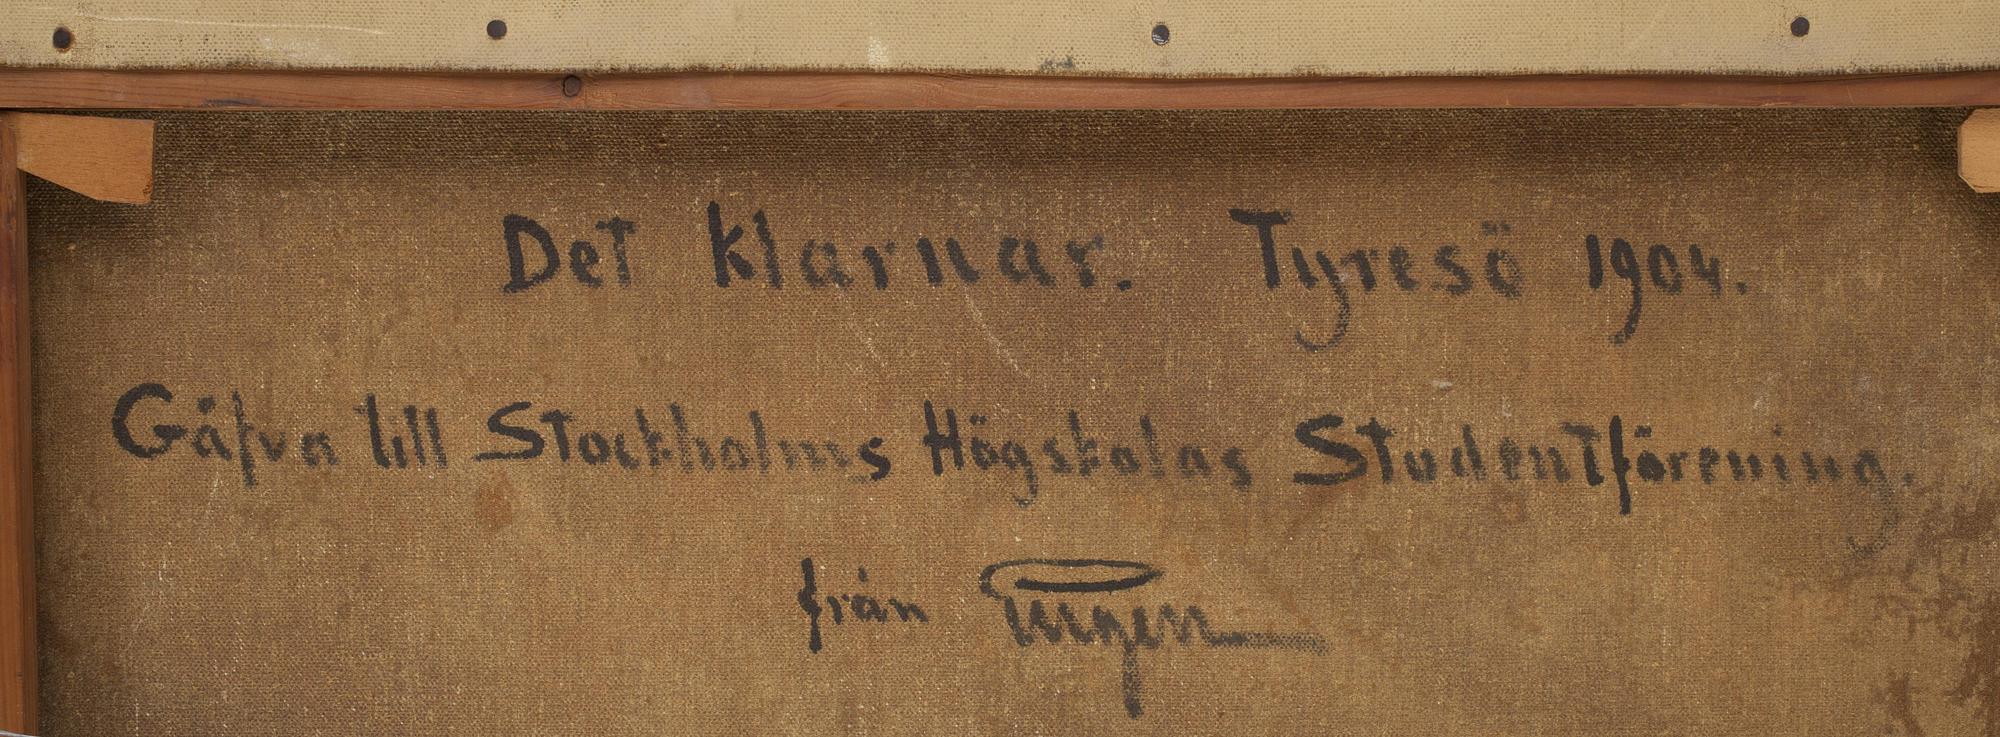 Det klarnar. Tyresö 1904.
Gåfva till Stockholms Högskolas Studentförening.
från Eugen